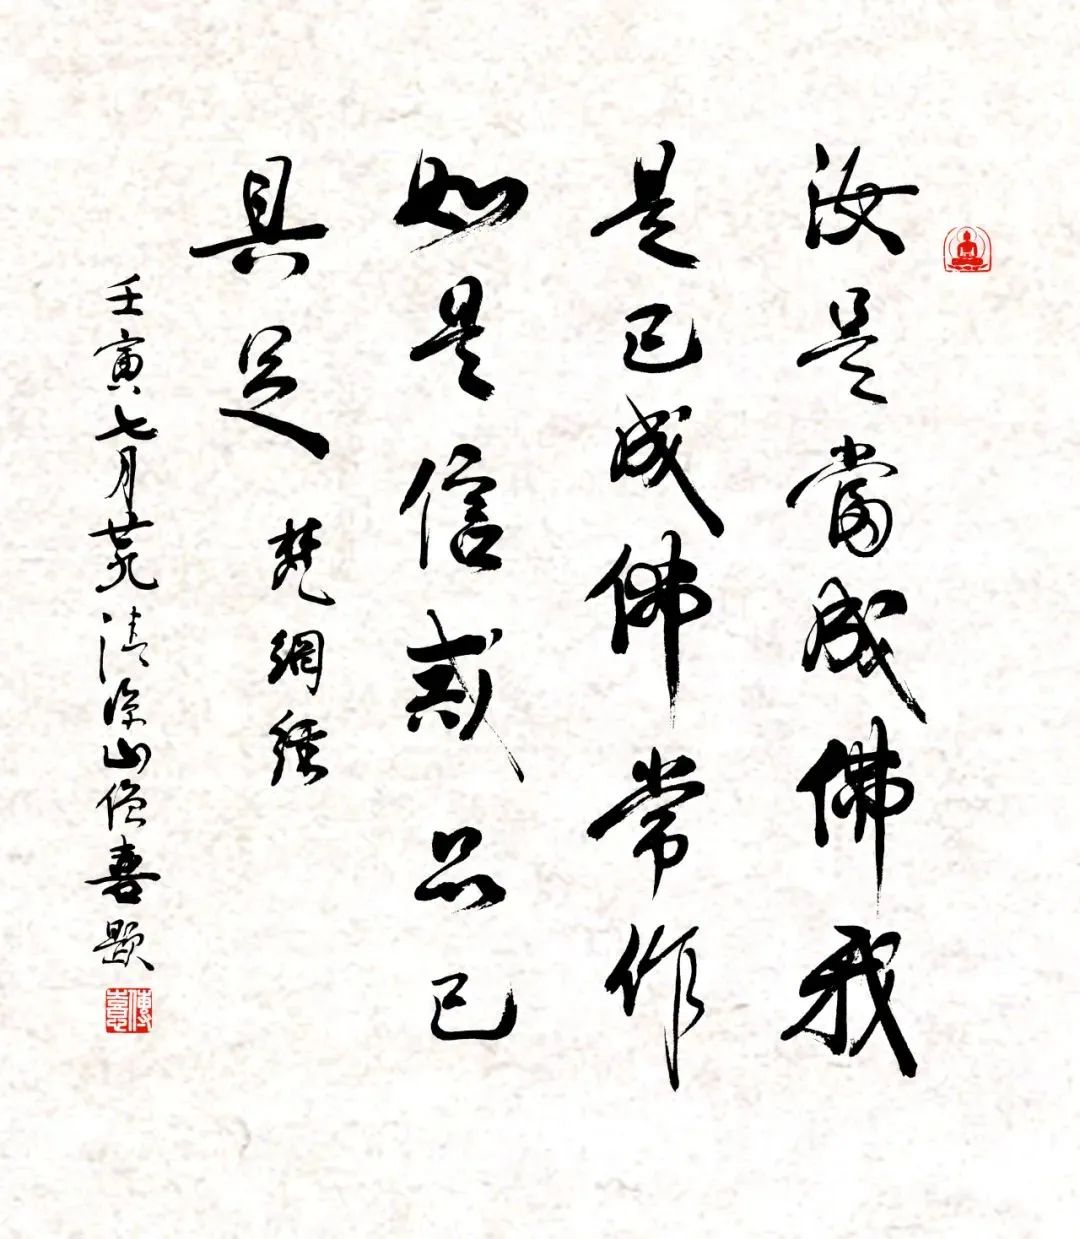 汝是當成佛我
是已成佛常作
如是信戒品已
具足
梵網經
壬寅七月廿九清涼山喜題
傳喜